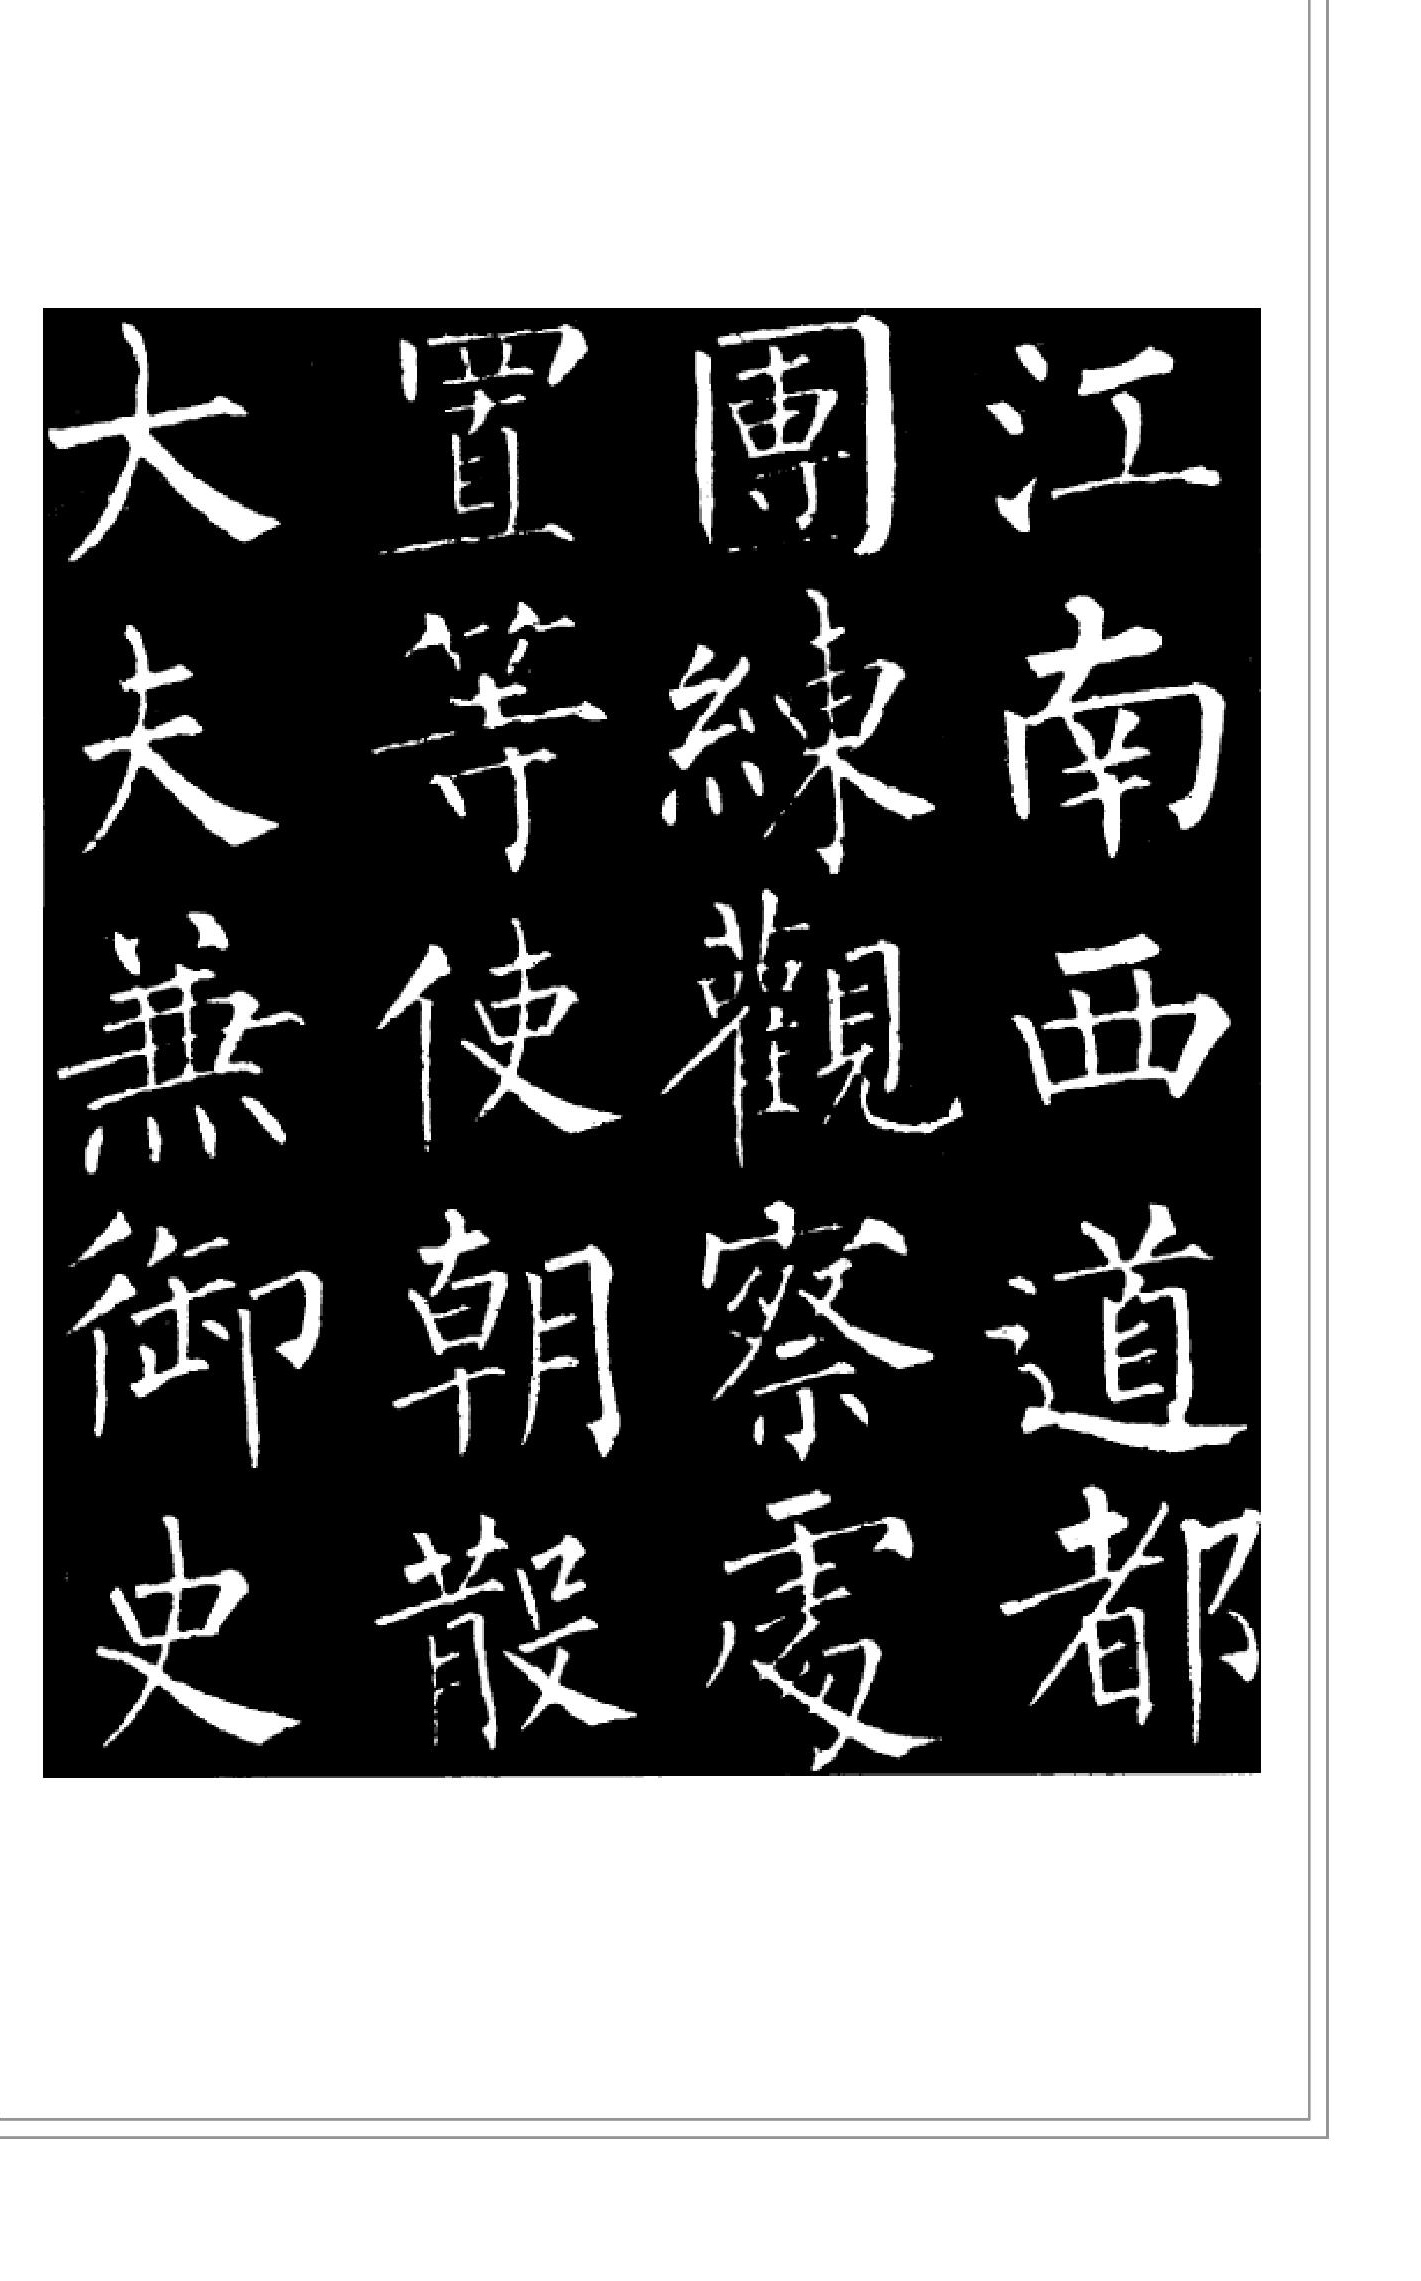 江南西道都
團練觀察處
置等使朝散
大夫兼御史